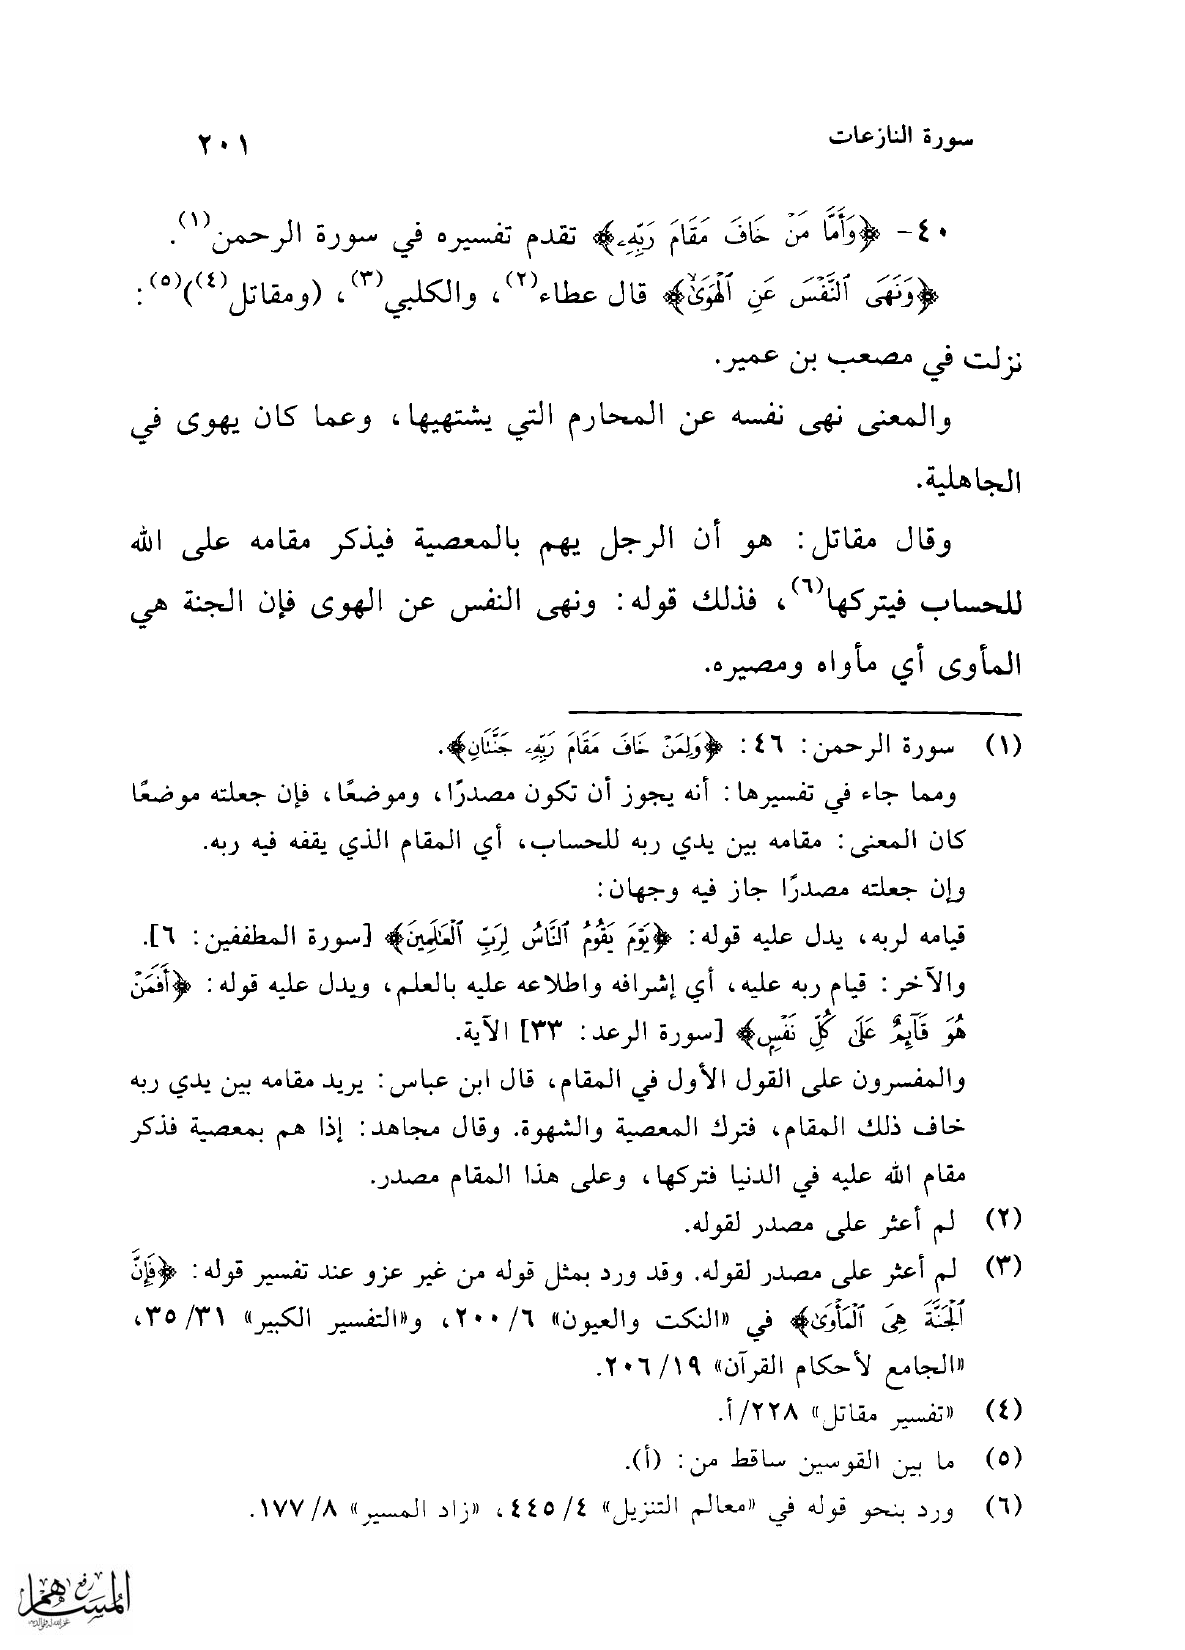 سورة النازعات ٢٠١
٤٠- ﴿وَأَمَّا مَنْ خَافَ مَقَامَ رَبِّهِۦ﴾ تقدم تفسيره في سورة الرحمن(١).
﴿وَنَهَى ٱلنَّفْسَ عَنِ ٱلْهَوَىٰ﴾ قال عطاء(٢)، والكلبي(٣)، (ومقاتل(٤))(٥):
نزلت في مصعب بن عمير.
والمعنى نهى نفسه عن المحارم التي يشتهيها، وعما كان يهوى في
الجاهلية.
وقال مقاتل: هو أن الرجل يهم بالمعصية فيذكر مقامه على الله
للحساب فيتركها(٦)، فذلك قوله: ونهى النفس عن الهوى فإن الجنة هي
المأوى أي مأواه ومصيره.
(١) سورة الرحمن: ٤٦: ﴿وَلِمَنْ خَافَ مَقَامَ رَبِّهِۦ جَنَّتَانِ﴾.
ومما جاء في تفسيرها: أنه يجوز أن تكون مصدرًا، وموضعًا، فإن جعلته موضعًا
كان المعنى: مقامه بين يدي ربه للحساب، أي المقام الذي يقفه فيه ربه.
وإن جعلته مصدرًا جاز فيه وجهان:
قيامه لربه، يدل عليه قوله: ﴿يَوْمَ يَقُومُ ٱلنَّاسُ لِرَبِّ ٱلْعَٰلَمِينَ﴾ [سورة المطففين: ٦].
والآخر: قيام ربه عليه، أي إشرافه واطلاعه عليه بالعلم، ويدل عليه قوله: ﴿أَفَمَنْ
هُوَ قَآئِمٌ عَلَىٰ كُلِّ نَفْسٍ﴾ [سورة الرعد: ٣٣] الآية.
والمفسرون على القول الأول في المقام، قال ابن عباس: يريد مقامه بين يدي ربه
خاف ذلك المقام، فترك المعصية والشهوة. وقال مجاهد: إذا هم بمعصية فذكر
مقام الله عليه في الدنيا فتركها، وعلى هذا المقام مصدر.
(٢) لم أعثر على مصدر لقوله.
(٣) لم أعثر على مصدر لقوله. وقد ورد بمثل قوله من غير عزو عند تفسير قوله: ﴿فَإِنَّ
ٱلْجَنَّةَ هِىَ ٱلْمَأْوَىٰ﴾ في «النكت والعيون» ٦/ ٢٠٠، و«التفسير الكبير» ٣١/ ٣٥،
«الجامع لأحكام القرآن» ١٩/ ٢٠٦.
(٤) «تفسير مقاتل» ٢٢٨/أ.
(٥) ما بين القوسين ساقط من: (أ).
(٦) ورد بنحو قوله في «معالم التنزيل» ٤/ ٤٤٥، «زاد المسير» ٨/ ١٧٧.